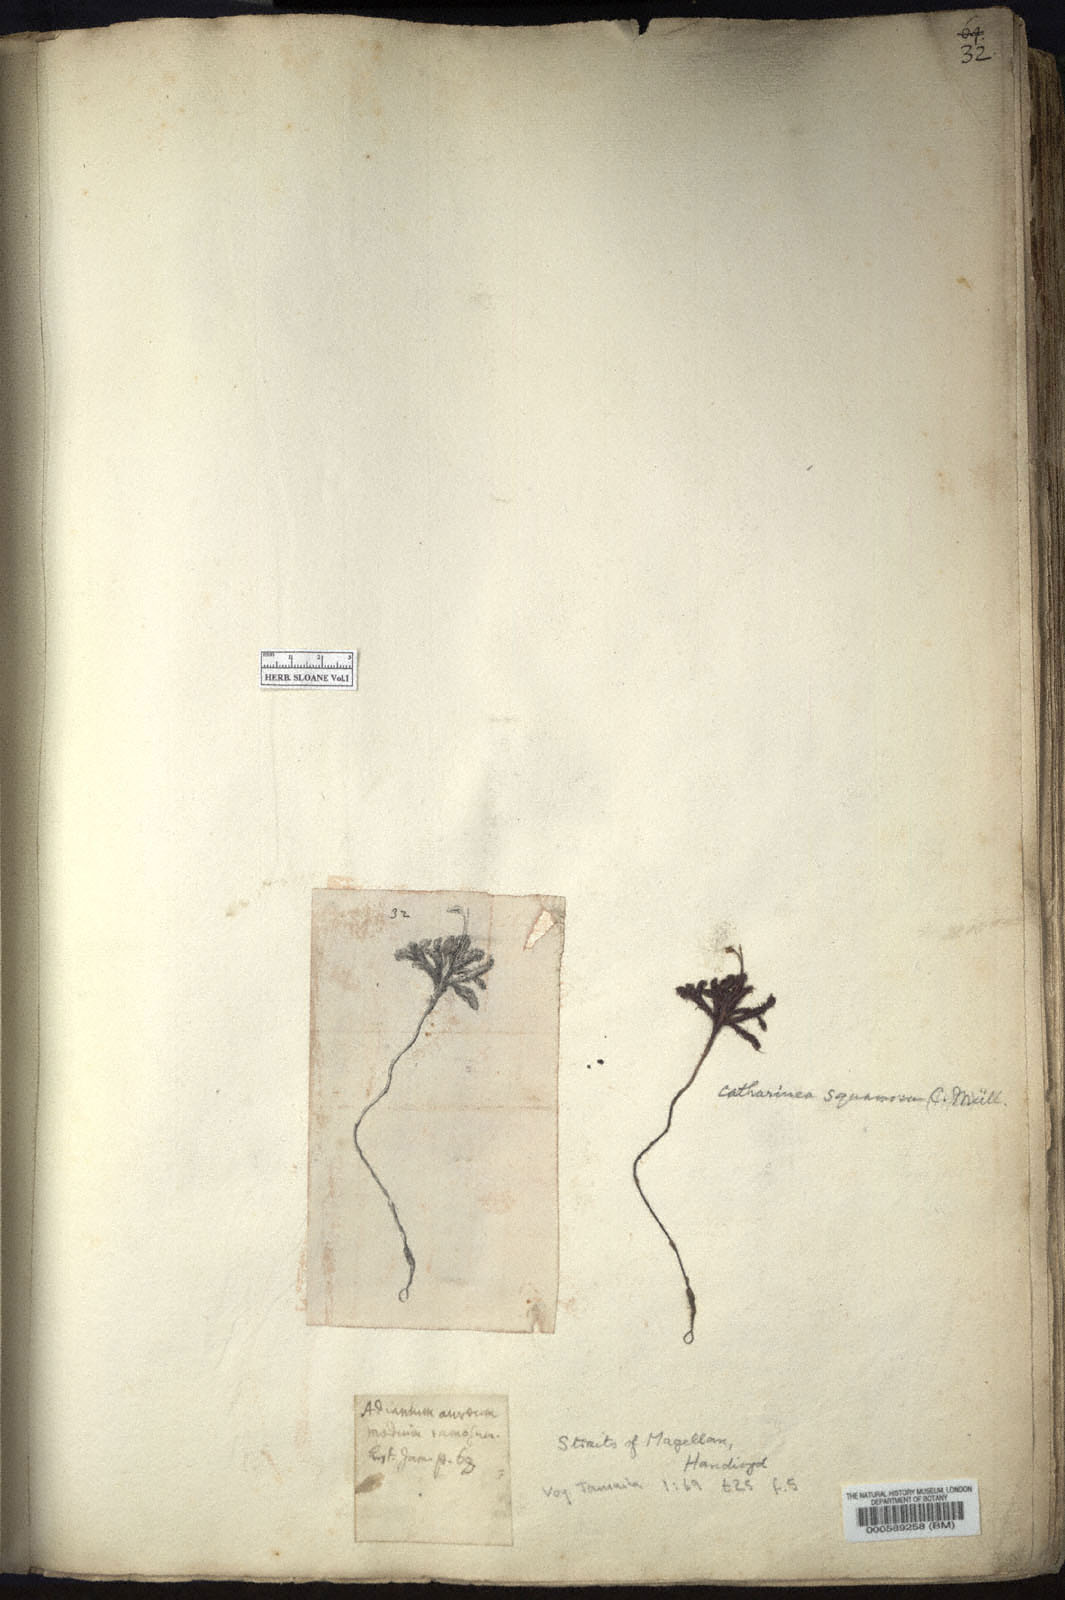 64.
32
mm 1 2 3
HERB. SLOANE Vol.1
32
Catharinea squamosa C. Müll.
Adiantum aureum
medium ramosum.
hist. Jam. p. 69
Straits of Magellan,
Handisyd
Voy Jamaica 1:69 t25 f.5
THE NATURAL HISTORY MUSEUM, LONDON
DEPARTMENT OF BOTANY
000589258 (BM)